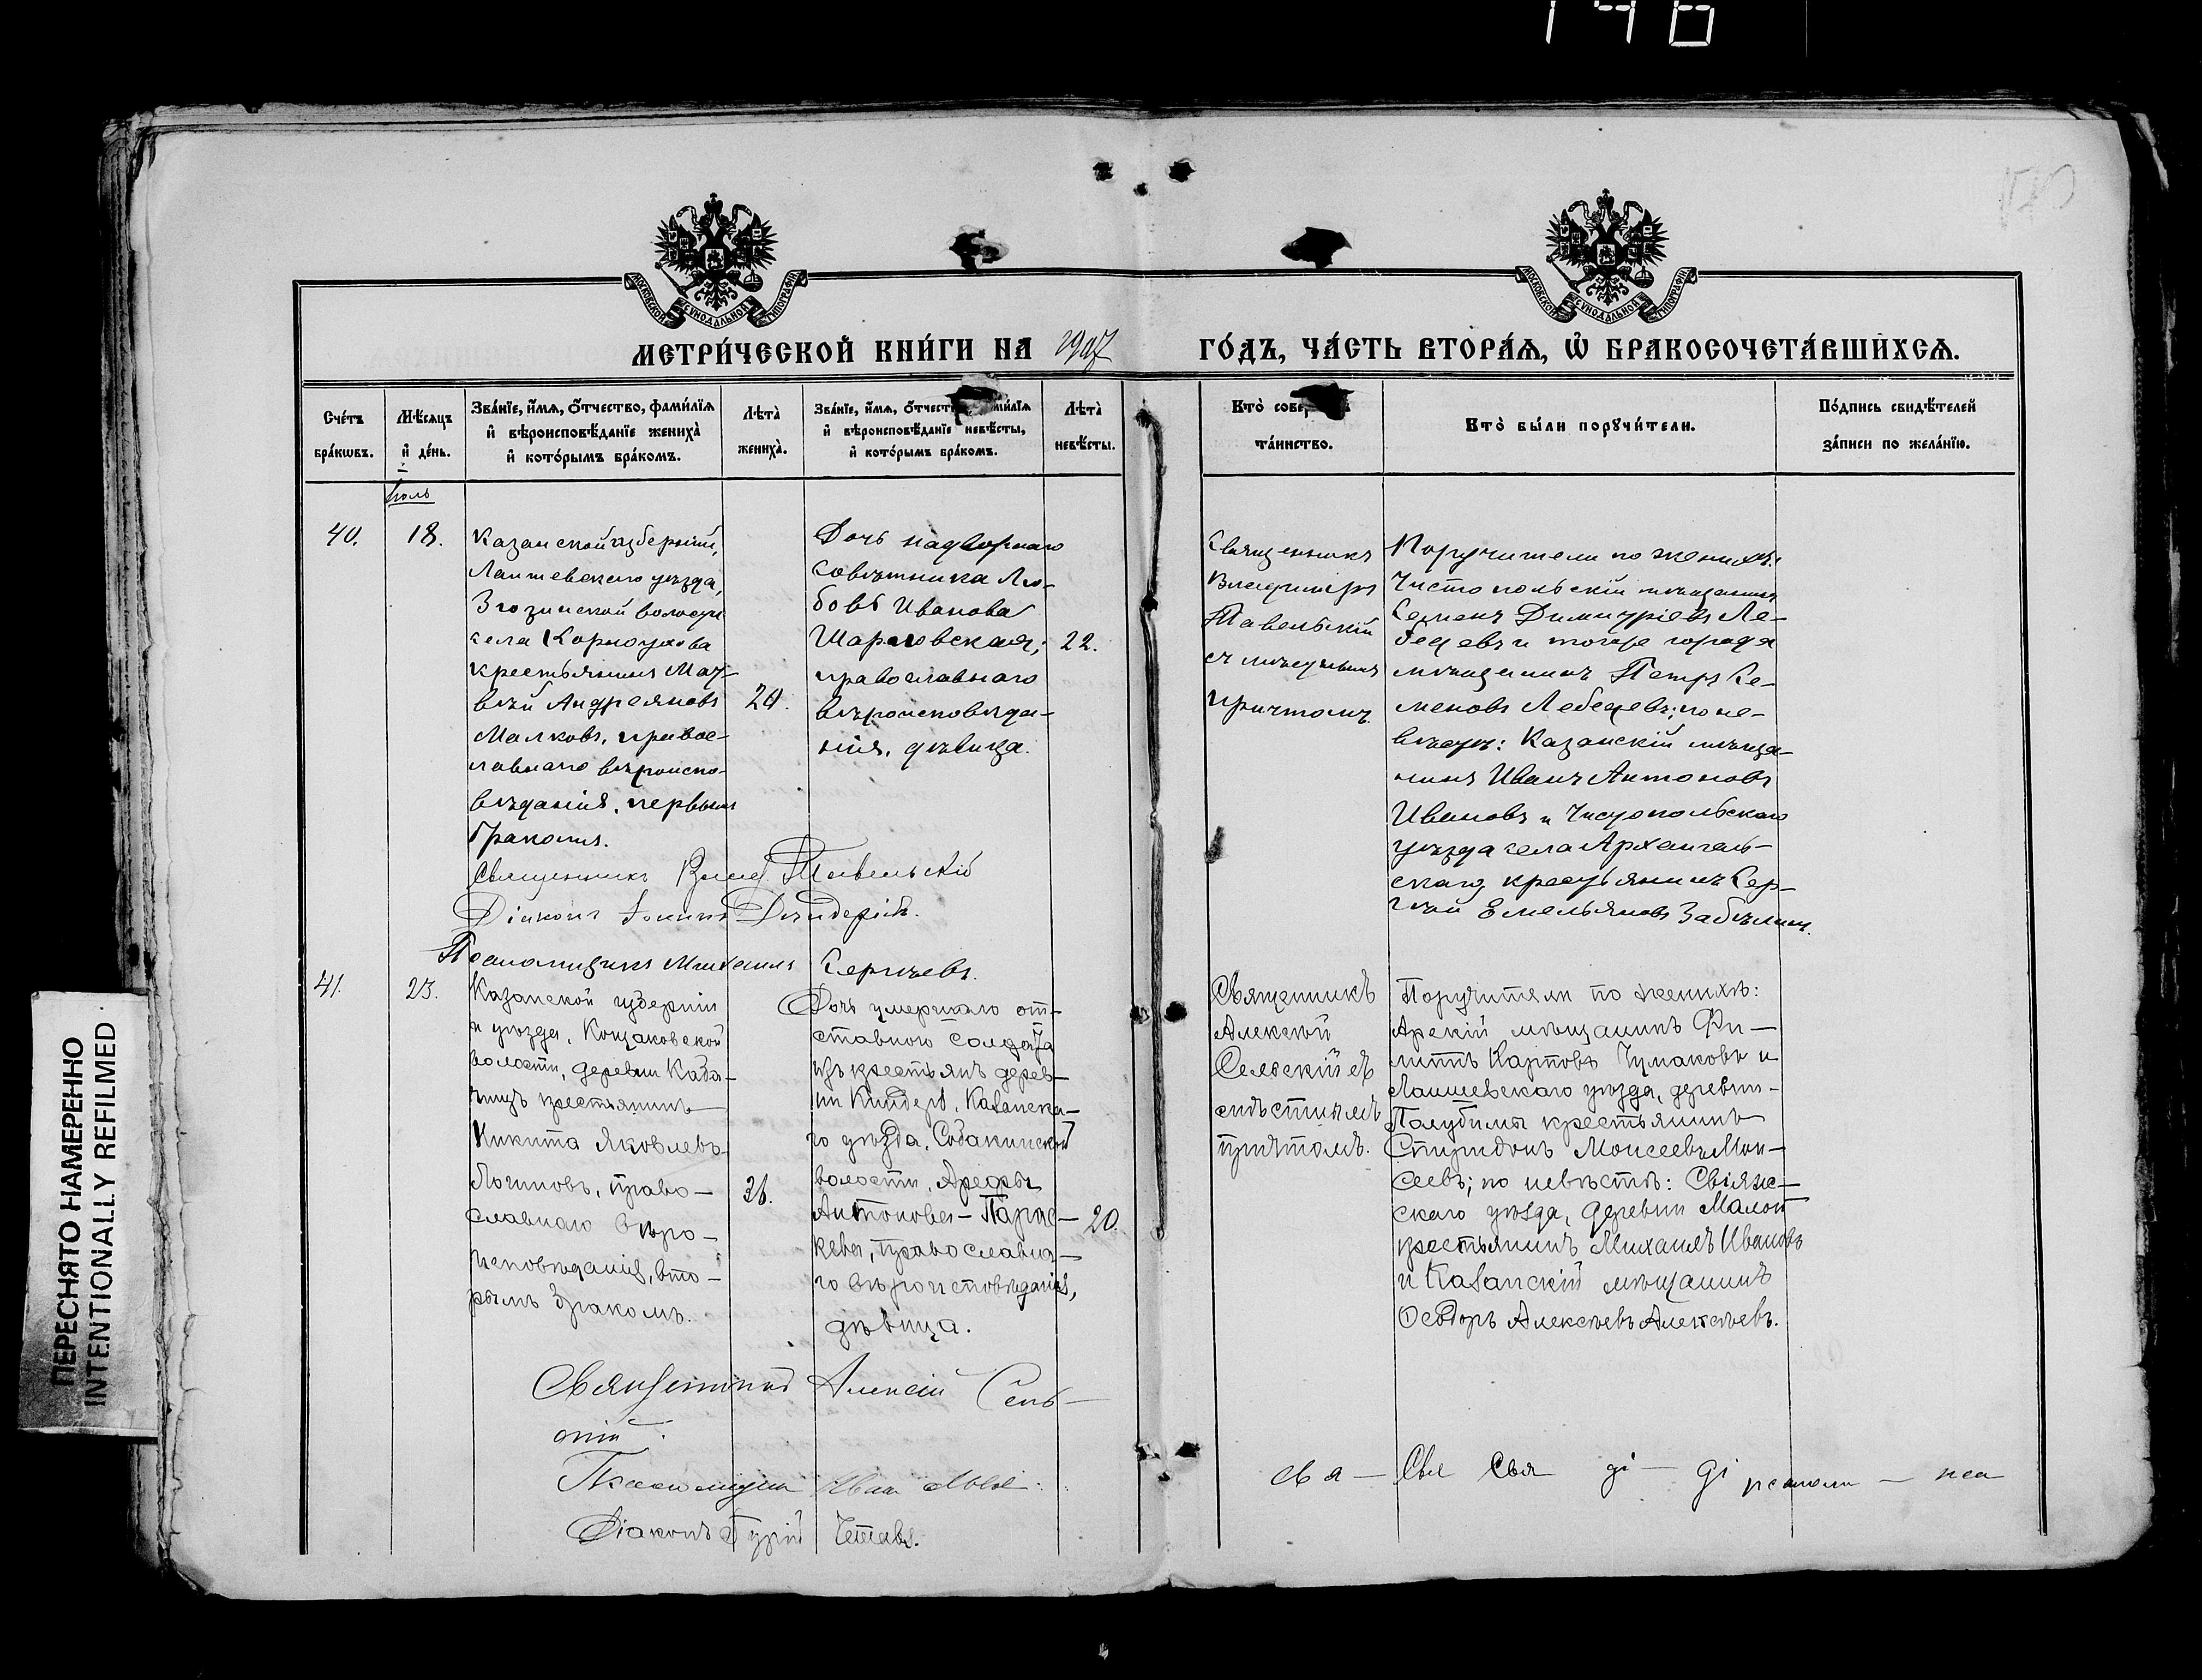 МЕТРИ́ЧЕСКОЙ КНИ́ГИ НА 1907 ГО́ДЪ, ЧА́СТЬ ВТОРА́Я, Ѽ БРАКОСОЧЕТА́ВШИХСЯ.
МОСКОВСКОЙ СѴНОДАЛЬНОЙ ТИПОГРАФІИ
МОСКОВСКОЙ СѴНОДАЛЬНОЙ ТИПОГРАФІИ
Сче́тъ бра́кѡвъ.
Мѣ́сяцъ и҆ де́нь.
Зва́нїе, и҆́мя, ѻ҆́тчество, фами́лїя
и҆ вѣроисповѣ́данїе жениха̀
и҆ кото́рымъ бра́комъ.
Лѣта̀ жениха̀.
Зва́нїе, и҆́мя, ѻ҆́тчест
и҆ вѣроисповѣ́данїе невѣ́сты,
и҆ кото́рымъ бра́комъ.
Лѣта̀ невѣ́сты.
Кто̀ сове
та́инство.
Кто̀ бы́ли порꙋчи́тели.
По́дпись свидѣ́телей
за́писи по жела́нїю.
Іюль
40.
18.
Казанской губерніи,
Лаишевскаго уѣзда,
волости
села Корноухова
крестьянинъ Мат-
вѣй Андреяновъ
Малковъ, правос-
лавнаго вѣроиспо-
вѣданія, первымъ
бракомъ.
20.
Дочь надворнаго
совѣтника Лю-
бовь Иванова
православнаго
вѣроисповѣда-
нія, дѣвица.
22.
Священникъ
Владиміръ
Павельскій
съ мѣстнымъ
причтомъ.
Поручители по женихѣ:
Чистопольскій мѣщанинъ
Семенъ Димитріевъ Ле-
бедевъ и того же города
мѣщанинъ Петръ Се-
меновъ Лебедевъ; по не-
вѣстѣ: Казанскій мѣща-
нинъ Иванъ Антоновъ
Ивановъ и Чистопольскаго
уѣзда села Архангель-
скаго крестьянинъ Сер-
гѣй Емельяновъ Забѣлин.
Священникъ Влад. Павельскій
Діаконъ Іоаннъ
Псаломщикъ Михаилъ Сергѣевъ.
41.
23.
Казанской губерніи
и уѣзда, Кощаковской
волости, деревни
крестьянинъ
Никита Яковлевъ
Логиновъ, право-
славнаго вѣро-
исповѣданія, вто-
рымъ бракомъ.
Дочь умершаго от-
ставного солдата
изъ крестьянъ дерев-
ни Киндеръ, Казанска-
го уѣзда, Собакинской
волости,
Антонова – Парас-
кева, православна-
го вѣроисповѣданія,
дѣвица.
20.
Священникъ
Алексѣй
Сельскій съ
мѣстнымъ
причтомъ.
Поручители по женихѣ:
Арскій мѣщанинъ Фи-
липпъ Карповъ Чумаковъ и
Лаишевскаго уѣзда, деревни
крестьянинъ
Спиридонъ Моисеевъ Мои-
сеевъ; по невѣстѣ: Свіяж-
скаго уѣзда, деревни Малой
крестьянинъ Михаилъ Ивановъ
и Казанскій мѣщанинъ
Ѳеодоръ Алексѣевъ Алексѣевъ.
Священникъ Алексій Сель-
скій.
Псаломщикъ Иван
Діаконъ Гурій
св я – Свя Свя ді – ді псаломщ – пса
ПЕРЕСНЯТО НАМЕРЕННО
INTENTIONALLY REFILMED